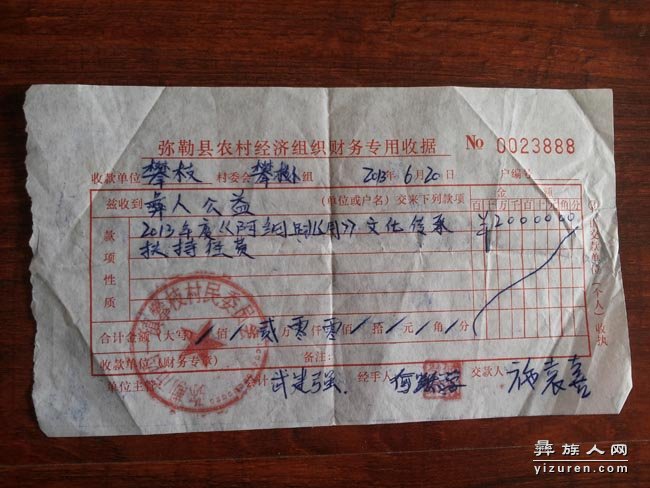 弥勒县农村经济组织财务专用收据 No 0023888
收款单位 攀枝 村委会 攀枝 组 2013年6月20日 户编号
兹收到 彝人公益 (单位或户名)交来下列款项 金额
百十万千百十元角分
款项性质 2013年度《阿细 文化传承 ¥2000000
扶持经费
合计金额(大写) 佰 拾 贰万零仟零佰 拾 元 角 分
收款单位(财务专章) 备注:
单位主管 会计 武发强 经手人 何 交款人 施袁喜
枝村民委员
彝族人网
yizuren.com